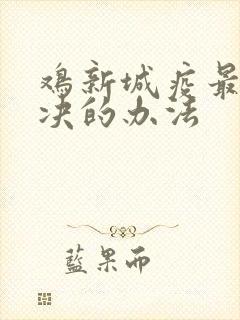 鸡新城疫最
决的办法
蓝果而